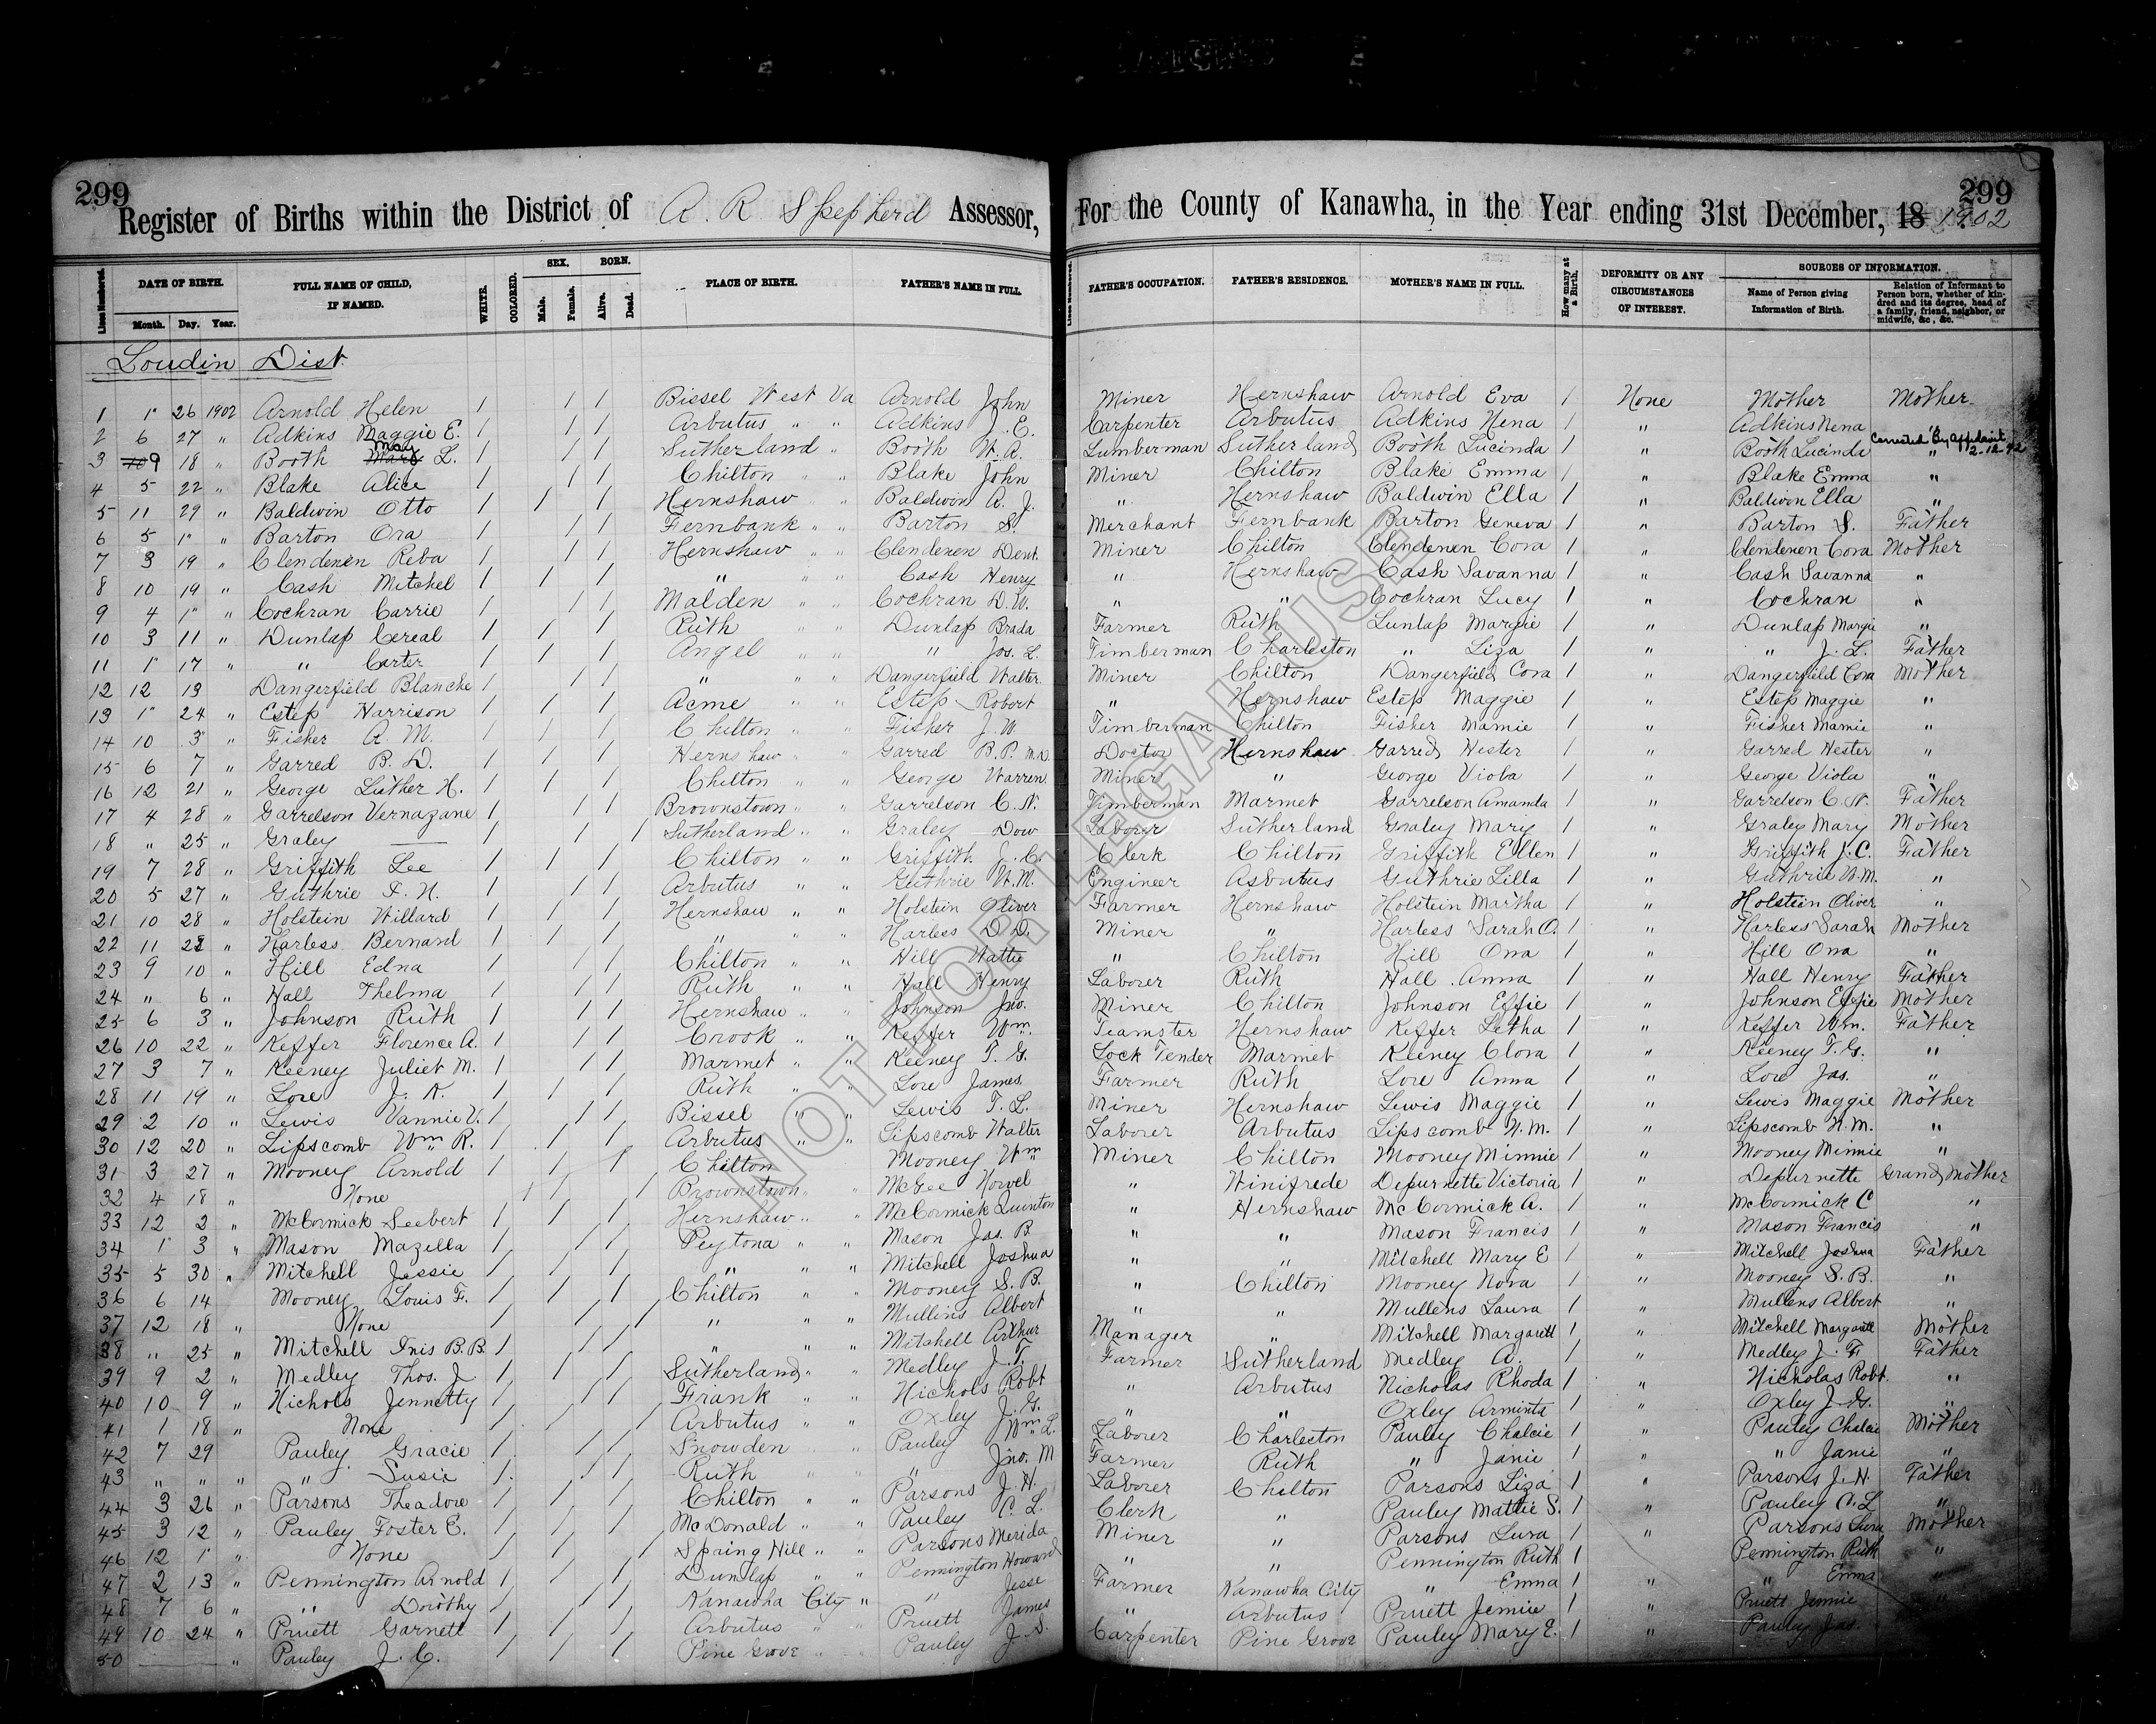 299
299
Register of Births within the District of A. R Shepherd Assessor, For the County of Kanawha, in the Year ending 31st December, 18 1902
Lines Numbered. DATE OF BIRTH. Month. Day. Year. FULL NAME OF CHILD, IF NAMED. WHITE. COLORED. SEX. Male. Female. BORN. Alive. Dead. PLACE OF BIRTH. FATHER'S NAME IN FULL. FATHER'S OCCUPATION. FATHER'S RESIDENCE. MOTHER'S NAME IN FULL. How many at a Birth. DEFORMITY OR ANY CIRCUMSTANCES OF INTEREST. SOURCES OF INFORMATION. Name of Person giving Information of Birth. Relation of Informant to Person born, whether of kindred and its degree, head of a family, friend, neighbor, or midwife, &c., &c.
Loudin Dist.
1 1" 26 1902 Arnold Helen / / / Bissel West Va Arnold John Miner Hernshaw Arnold Eva 1 None Mother Mother
2 6 27 " Adkins Maggie E. / / / Arbutus " " Adkins J. E. Carpenter Arbutus Adkins Nena 1 " Adkins Nena "
3 10 9 18 " Booth Mary May L. / / / Sutherland " Booth W. A. Lumberman Sutherland Booth Lucinda 1 " Booth Lucinda " Corrected By Affidavit 2-12-42
4 5 22 " Blake Alice / / / Chilton " " Blake John Miner Chilton Blake Emma 1 " Blake Emma "
5 11 29 " Baldwin Otto / / / Hernshaw " " Baldwin A. J. " Hernshaw Baldwin Ella 1 " Baldwin Ella "
6 5 1" " Barton Ora / / / Fernbank " " Barton S. Merchant Fernbank Barton Geneva 1 " Barton S. Father
7 3 19 " Clendenen Reba / / / Hernshaw " " Clendenen Dent. Miner Chilton Clendenen Cora 1 " Clendenen Cora Mother
8 10 19 " Cash Mitchel / / / " " " Cash Henry " Hernshaw Cash Savanna 1 " Cash Savanna "
9 4 1" " Cochran Carrie / / / Malden " " Cochran D. W. " " Cochran Lucy 1 " Cochran "
10 3 11 " Dunlap Cereal / / / Ruth " " Dunlap Brada Farmer Ruth Lunlap Margie 1 " Dunlap Margie "
11 1" 17 " " Carter / / / Angel " " " Jos. L. Timberman Charleston " Liza 1 " " J. L. Father
12 12 13 Dangerfield Blanche / / / " " " Dangerfield Walter. Miner Chilton Dangerfield Cora 1 " Dangerfield Cora Mother
13 1" 24 " Estep Harrison / / / Acme " " Estep Robert " Hernshaw Estep Maggie 1 " Estep Maggie "
14 10 3" " Fisher A. M. / / / Chilton " " Fisher J. W Timberman Chilton Fisher Mamie 1 " Fisher Mamie "
15 6 7 " Garred B. D. / / / Hernshaw " Garred B. P. M.D. Doctor Hernshaw Garred Hester 1 " Garred Hester "
16 12 21 " George Luther H. / / / Chilton " " George Warren. Miner " George Viola 1 " George Viola "
17 4 28 " Garrelson Vernazane / / / Brownstown " " Garrelson C. N. Timberman Marmet Garrelson Amanda 1 " Garrelson C. N. Father
18 " 25 " Graley — / / / Sutherland " " Graley Dow Laborer Sutherland Graley Mary 1 " Graley Mary Mother
19 7 28 " Griffith Lee / / / Chilton " " Griffith J. C. Clerk Chilton Griffith Ellen 1 " Griffith J. C. Father
20 5 27 " Guthrie I. N. / / / Arbutus " " Guthrie W. M. Engineer Asbutus Guthrie Lilla 1 " Guthrie W. M. "
21 10 28 " Holstein Willard / / / Hernshaw " " Holstein Oliver Farmer Hernshaw Holstein Martha 1 " Holstein Oliver "
22 11 28 " Harless Bernard / / / " " " Harless D. D. Miner " Harless Sarah O. 1 " Harless Sarah Mother
23 9 10 " Hill Edna / / / Chilton " " Hill Wattie " Chilton Hill Ona 1 " Hill Ona "
24 " 6 " Hall Thelma / / / Ruth " " Hall Henry Laborer Ruth Hall Anna 1 " Hall Henry Father
25 6 3 " Johnson Ruth / / / Hernshaw " " Johnson Jno. Miner Chilton Johnson Effie 1 " Johnson Effie Mother
26 10 22 " Keffer Florence A. / / / Crook " " Keffer Wm. Teamster Hernshaw Keffer Letha 1 " Keffer Wm. Father
27 3 7 " Keeney Juliet M. / / / Marmet " " Keeney T. G. Lock Tender Marmet Keeney Clora 1 " Keeney T. G. "
28 11 19 " Lore J. K. / / / Ruth " " Lore James. Farmer Ruth Lore Anna 1 " Lore Jas. "
29 2 10 " Lewis Vannie V. / / / Bissel " " Lewis T. L. Miner Hernshaw Lewis Maggie 1 " Lewis Maggie Mother
30 12 20 " Lipscomb Wm R. / / / Arbutus " " Lipscomb Walter Laborer Arbutus Lipscomb N. M. 1 " Lipscomb N. M. "
31 3 27 " Mooney Arnold / / / Chilton Mooney Wm Miner Chilton Mooney Minnie 1 " Mooney Minnie "
32 4 18 " None / / / Brownstown " " McGee Norvel " Winifrede Depurnette Victoria 1 " Depurnette Grand Mother
33 12 2 " McCormick Seebert / / / Hernshaw " " McCormick Quinton " Hernshaw McCormick A. 1 " McCormick C "
34 1" 3 " Mason Mazella / / / Peytona " " Mason Jas. B " " Mason Francis 1 " Mason Francis "
35 5 30 " Mitchell Jessie / / / " " " Mitchell Joshua " " Mitchell Mary E 1 " Mitchell Joshua Father
36 6 14 Mooney Louis F. / / / Chilton " " Mooney S. B. " Chilton Mooney Nora 1 " Mooney S. B. "
37 12 18 " None / / / " " " Mullins Albert " " Mullens Laura 1 " Mullens Albert "
38 " 25 " Mitchell Inis B. B. / / / " " " Mitchell Arthur Manager " Mitchell Margarett 1 " Mitchell Margarett Mother
39 9 2 " Medley Thos. J. / / / Sutherland " " Medley J. F. Farmer Sutherland Medley A. 1 " Medley J. F Father
40 10 9 " Nichols Jennetty / / / Frank " " Nichols Robt " Arbutus Nicholas Rhoda 1 " Nicholas Robt. "
41 1 18 " None / / / Arbutus " " Oxley J. G. " " Oxley Arminta 1 " Oxley J. G. "
42 7 29 Pauley Gracie / / / Snowden " " Pauley Wm L. Laborer Charlecton Pauley Chalcie 1 " Pauley Chalcie Mother
43 " " " " Susie / / / Ruth " " " Jno. M Farmer Ruth " Janie 1 " " Janie "
44 3 26 " Parsons Theadore / / / Chilton " " Parsons J. H. Laborer Chilton Parsons Liza 1 " Parsons J. H. Father
45 3 12 " Pauley Foster E. / / / McDonald " " Pauley C. L. Clerk " Pauley Mattie S. 1 " Pauley C. L "
46 12 1" " None / / / Spring Hill " " Parsons Merida Miner " Parsons Lura 1 " Parsons Lura Mother
47 2 13 " Pennington Arnold / / / Dunlap " " Pennington Howard " " Pennington Ruth 1 Pennington Ruth "
48 7 6 " " Dorothy / / / Kanawha City " " Jesse Farmer Kanawha City " Emma 1 " " Emma "
49 10 24 " Pruett Garnett / / / Arbutus " " Pruett James " Arbutus Pruett Jennie 1 " Pruett Jennie "
50 — " Pauley J. C. / / / Pine Grove " " Pauley J. S. Carpenter Pine Grove Pauley Mary E. 1 " Pauley Jas.
NOT FOR LEGAL USE